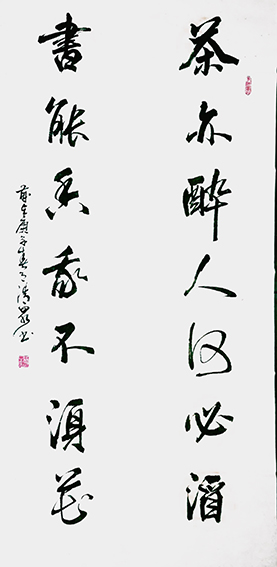 茶亦醉人何必酒
書能香我不須花
歲在庚子春月清書